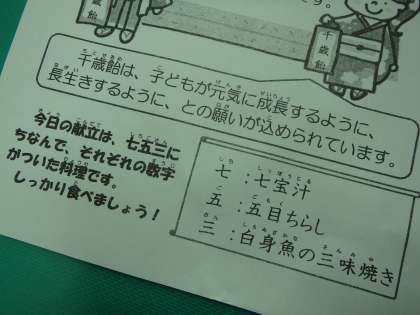 です。
千歳飴
千歳飴
千歳飴は、子どもが元気に成長するように、
長生きするように、との願いが込められています。
今日の献立は、七五三に
ちなんで、それぞれの数字
がついた料理です。
しっかり食べましょう！
七：七宝汁
五：五目ちらし
三：白身魚の三味焼き